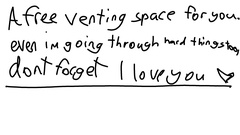 A free venting space for you.
even im going through hard things too,
dont forget I love you